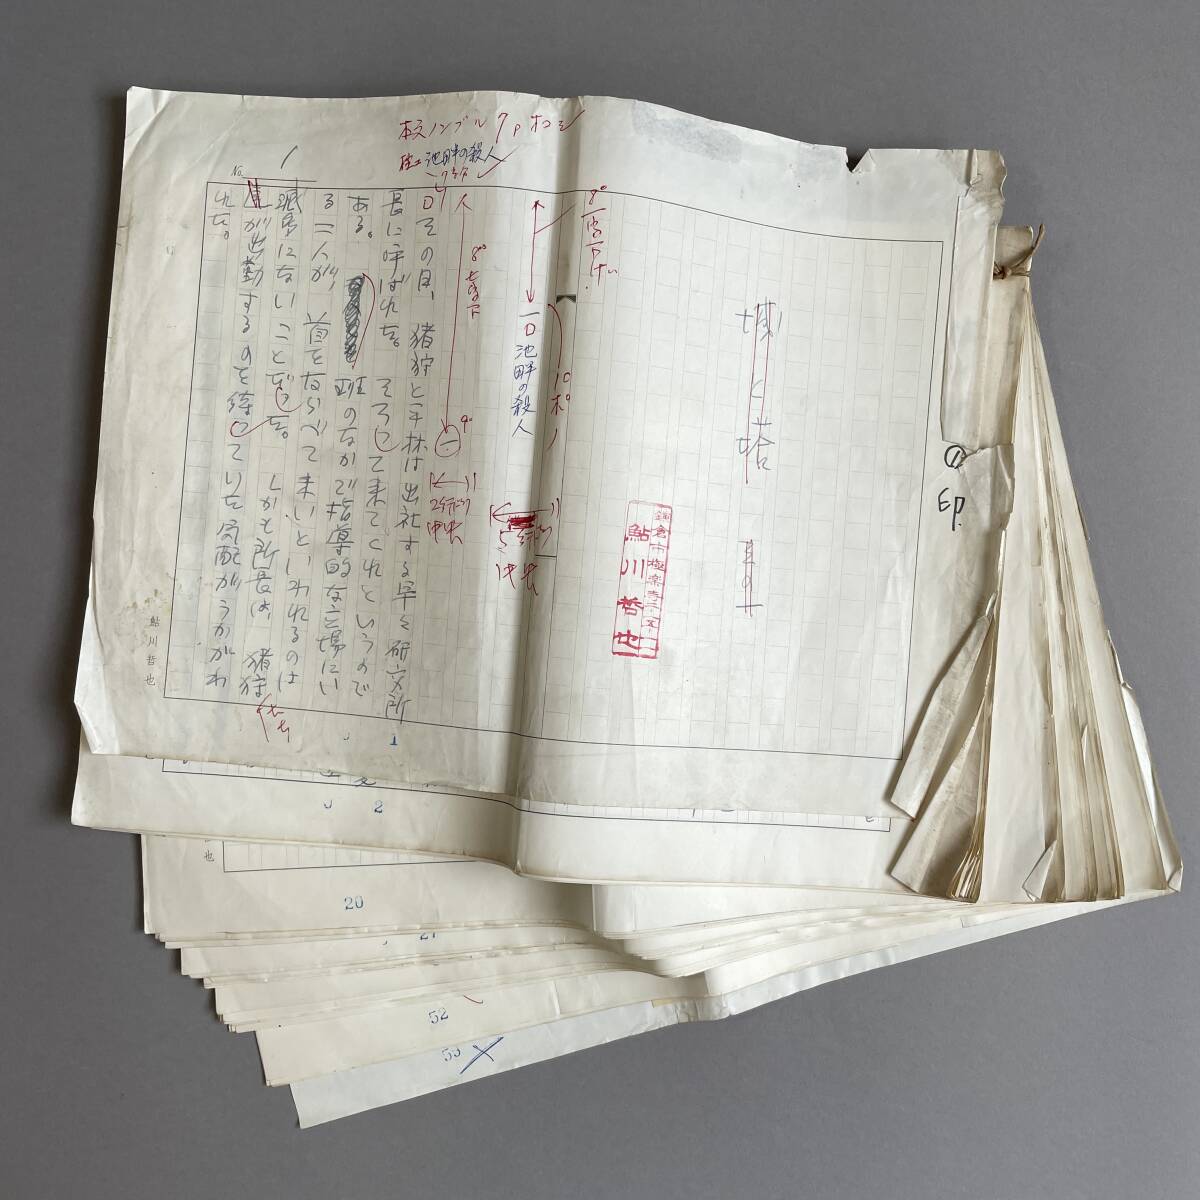 城と塔
鎌倉市極楽寺三ー五ー一
鮎川哲也
①
印
本文ノンブル 7p ホコシ
柱= 池畔の殺人
8°
10ポ
一 池畔の殺人
2行ドリ
中央
8°
9°
一
その日、猪狩と平林は出社する早々研究所
長に呼ばれた。そろって来てくれというので
ある。班のなかで指導的な立場にい
る二人が、首をならべて来いといわれるのは
滅多にないことだった。しかも所長は、猪狩
が出勤するのを待っていた気配がうかがわ
れた。
No. 1
鮎川哲也
1
2
也
20
21
52
53